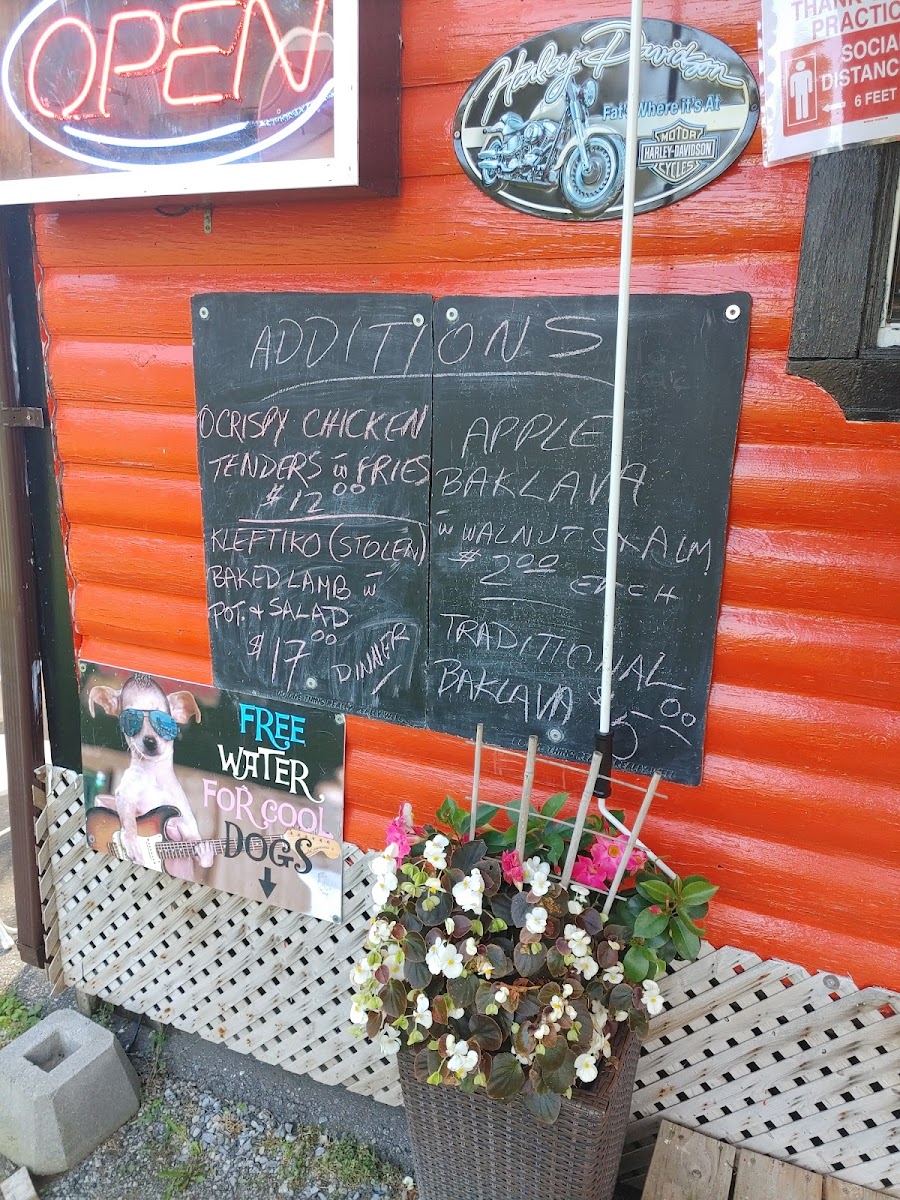 OPEN
Harley-Davidson
Fat's Where it's At
MOTOR
HARLEY-DAVIDSON
CYCLES
THANK
PRACTIC
SOCIA
DISTANC
6 FEET
ADDITIONS
CRISPY CHICKEN
TENDERS w FRIES
$12.00
KLEFTIKO (STOLEN)
BAKED LAMB w
POT. & SALAD
$17.00 DINNER
APPLE
BAKLAVA
w WALNUTS & ALM
$2.00 EACH
TRADITIONAL
BAKLAVA
FREE
WATER
FOR COOL
DOGS